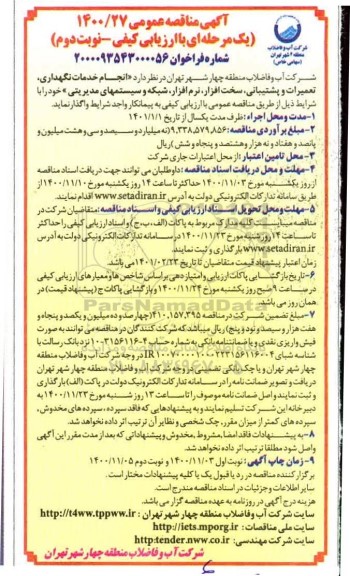 آگهی مناقصه عمومی ۱۴۰۰/۲۷
(یک مرحله‌ای با ارزیابی کیفی -نوبت دوم)
شماره فراخوان ۲۰۰۰۰۹۳۵۴۳۰۰۰۰۵۶
شرکت آب و فاضلاب
منطقه ۴ شهر تهران
(سهامی خاص)
شرکت آب و فاضلاب منطقه چهار شهر تهران در نظر دارد «انجام خدمات نگهداری،
تعمیرات و پشتیبانی، سخت افزار، نرم افزار، شبکه و سیستمهای مدیریتی » خود را با
شرایط ذیل از طریق مناقصه عمومی با ارزیابی کیفی به پیمانکار واجد شرایط واگذار نماید.
۱-مدت و محل اجراء : ظرف مدت یکسال از تاریخ ۱۴۰۱/۱/۱
۲-مبلغ برآوردی مناقصه: ۹,۳۳۸,۵۷۹,۸۵۶ (نه میلیارد و سیصد و سی و هشت میلیون و
پانصد و هفتاد و نه هزار و هشتصد و پنجاه و شش ) ریال
۳- محل تامین اعتبار : از محل اعتبارات جاری شرکت
۴-مهلت و محل دریافت اسناد مناقصه : داوطلبان می توانند جهت دریافت اسناد مناقصه
از روز یکشنبه مورخ ۱۴۰۰/۱۱/۰۳ حداکثر تا ساعت ۱۴ روز یکشنبه مورخ ۱۴۰۰/۱۱/۱۰ از
طریق سامانه تدارکات الکترونیکی دولت به آدرس www.setadiran.ir اقدام نمایند.
۵-مهلت ومحل تحویل اسناد ارزیابی کیفی و اسناد مناقصه : متقاضیان شرکت در
مناقصه میبایست کلیه مدارک مربوط به پاکات (الف، ب، ج) و اسناد ارزیابی کیفی را حداکثر
تا ساعت ۱۴ روز شنبه مورخ ۱۴۰۰/۱۱/۲۳ در سامانه تدارکات الکترونیکی دولت به آدرس
www.setadiran.ir بارگذاری و ثبت نمایند.
زمان اعتبار پیشنهاد قیمت متقاضیان تا تاریخ ۱۴۰۱/۰۲/۲۳ می باشد.
۶-تاریخ بازگشایی پاکات ارزیابی و امتیازدهی براساس شاخص ها و معیارهای ارزیابی کیفی
در ساعت ۹ صبح روز یکشنبه مورخ ۱۴۰۰/۱۱/۲۴ و بازگشایی پاکات ج (پیشنهاد قیمت) در
همان روز می باشد.
۷-مبلغ تضمین شرکت در مناقصه ۴۱۰,۱۵۷,۳۹۵ (چهارصد و ده میلیون و یکصد و پنجاه و
هفت هزار و سیصد و نود و پنج) ریال میباشد که شرکت کنندگان در مناقصه می توانند به صورت
فیش واریزی نقدی و یا ضمانتنامه بانکی به شماره حساب ۴-۱۰۰۳۱۵۶۱۱۶ نزد بانک رسالت با
شناسه شبای در وجه شرکت آب و فاضلاب منطقه
چهار شهر تهران و یا چک بانکی تضمینی در وجه شرکت آب و فاضلاب منطقه چهار شهر تهران
دریافت و تصویر ضمانت نامه را در سامانه تدارکات الکترونیک دولت در پاکت (الف) بارگذاری
و ثبت نمایند و اصل ضمانت نامه موصوف را تا ساعت ۱۳ روز شنبه مورخ ۱۴۰۰/۱۱/۲۳ به
دبیرخانه این شرکت تسلیم نمایند و به پیشنهادهایی که فاقد سپرده ، سپرده های مخدوش ،
سپرده های کمتر از میزان مقرر، چک شخصی و نظایر آن ترتیب اثر داده نخواهد شد.
۸-به پیشنهادات فاقد امضا، مشروط ، مخدوش و پیشنهاداتی که بعد از مدت مقرر این آگهی
واصل شود مطلقا ترتیب اثر داده نخواهد شد.
۹- زمان چاپ آگهی : نوبت اول ۱۴۰۰/۱۱/۰۳ و نوبت دوم ۱۴۰۰/۱۱/۰۵
برگزار کننده مناقصه در رد یا قبول یک یا کلیه پیشنهادات مختار است.
سایر اطلاعات و جزئیات در اسناد مناقصه مندرج است.
هزینه درج آگهی در روزنامه به عهده مناقصه گزار می باشد.
سایت شرکت آب و فاضلاب منطقه چهار شهر تهران : http://t4ww.tppww.ir
سایت ملی مناقصات: http://iets.mporg.ir
سایت شرکت مهندسی: http:tender.nww.co.ir
شرکت آب و فاضلاب منطقه چهار شهر تهران
ParsNamadData